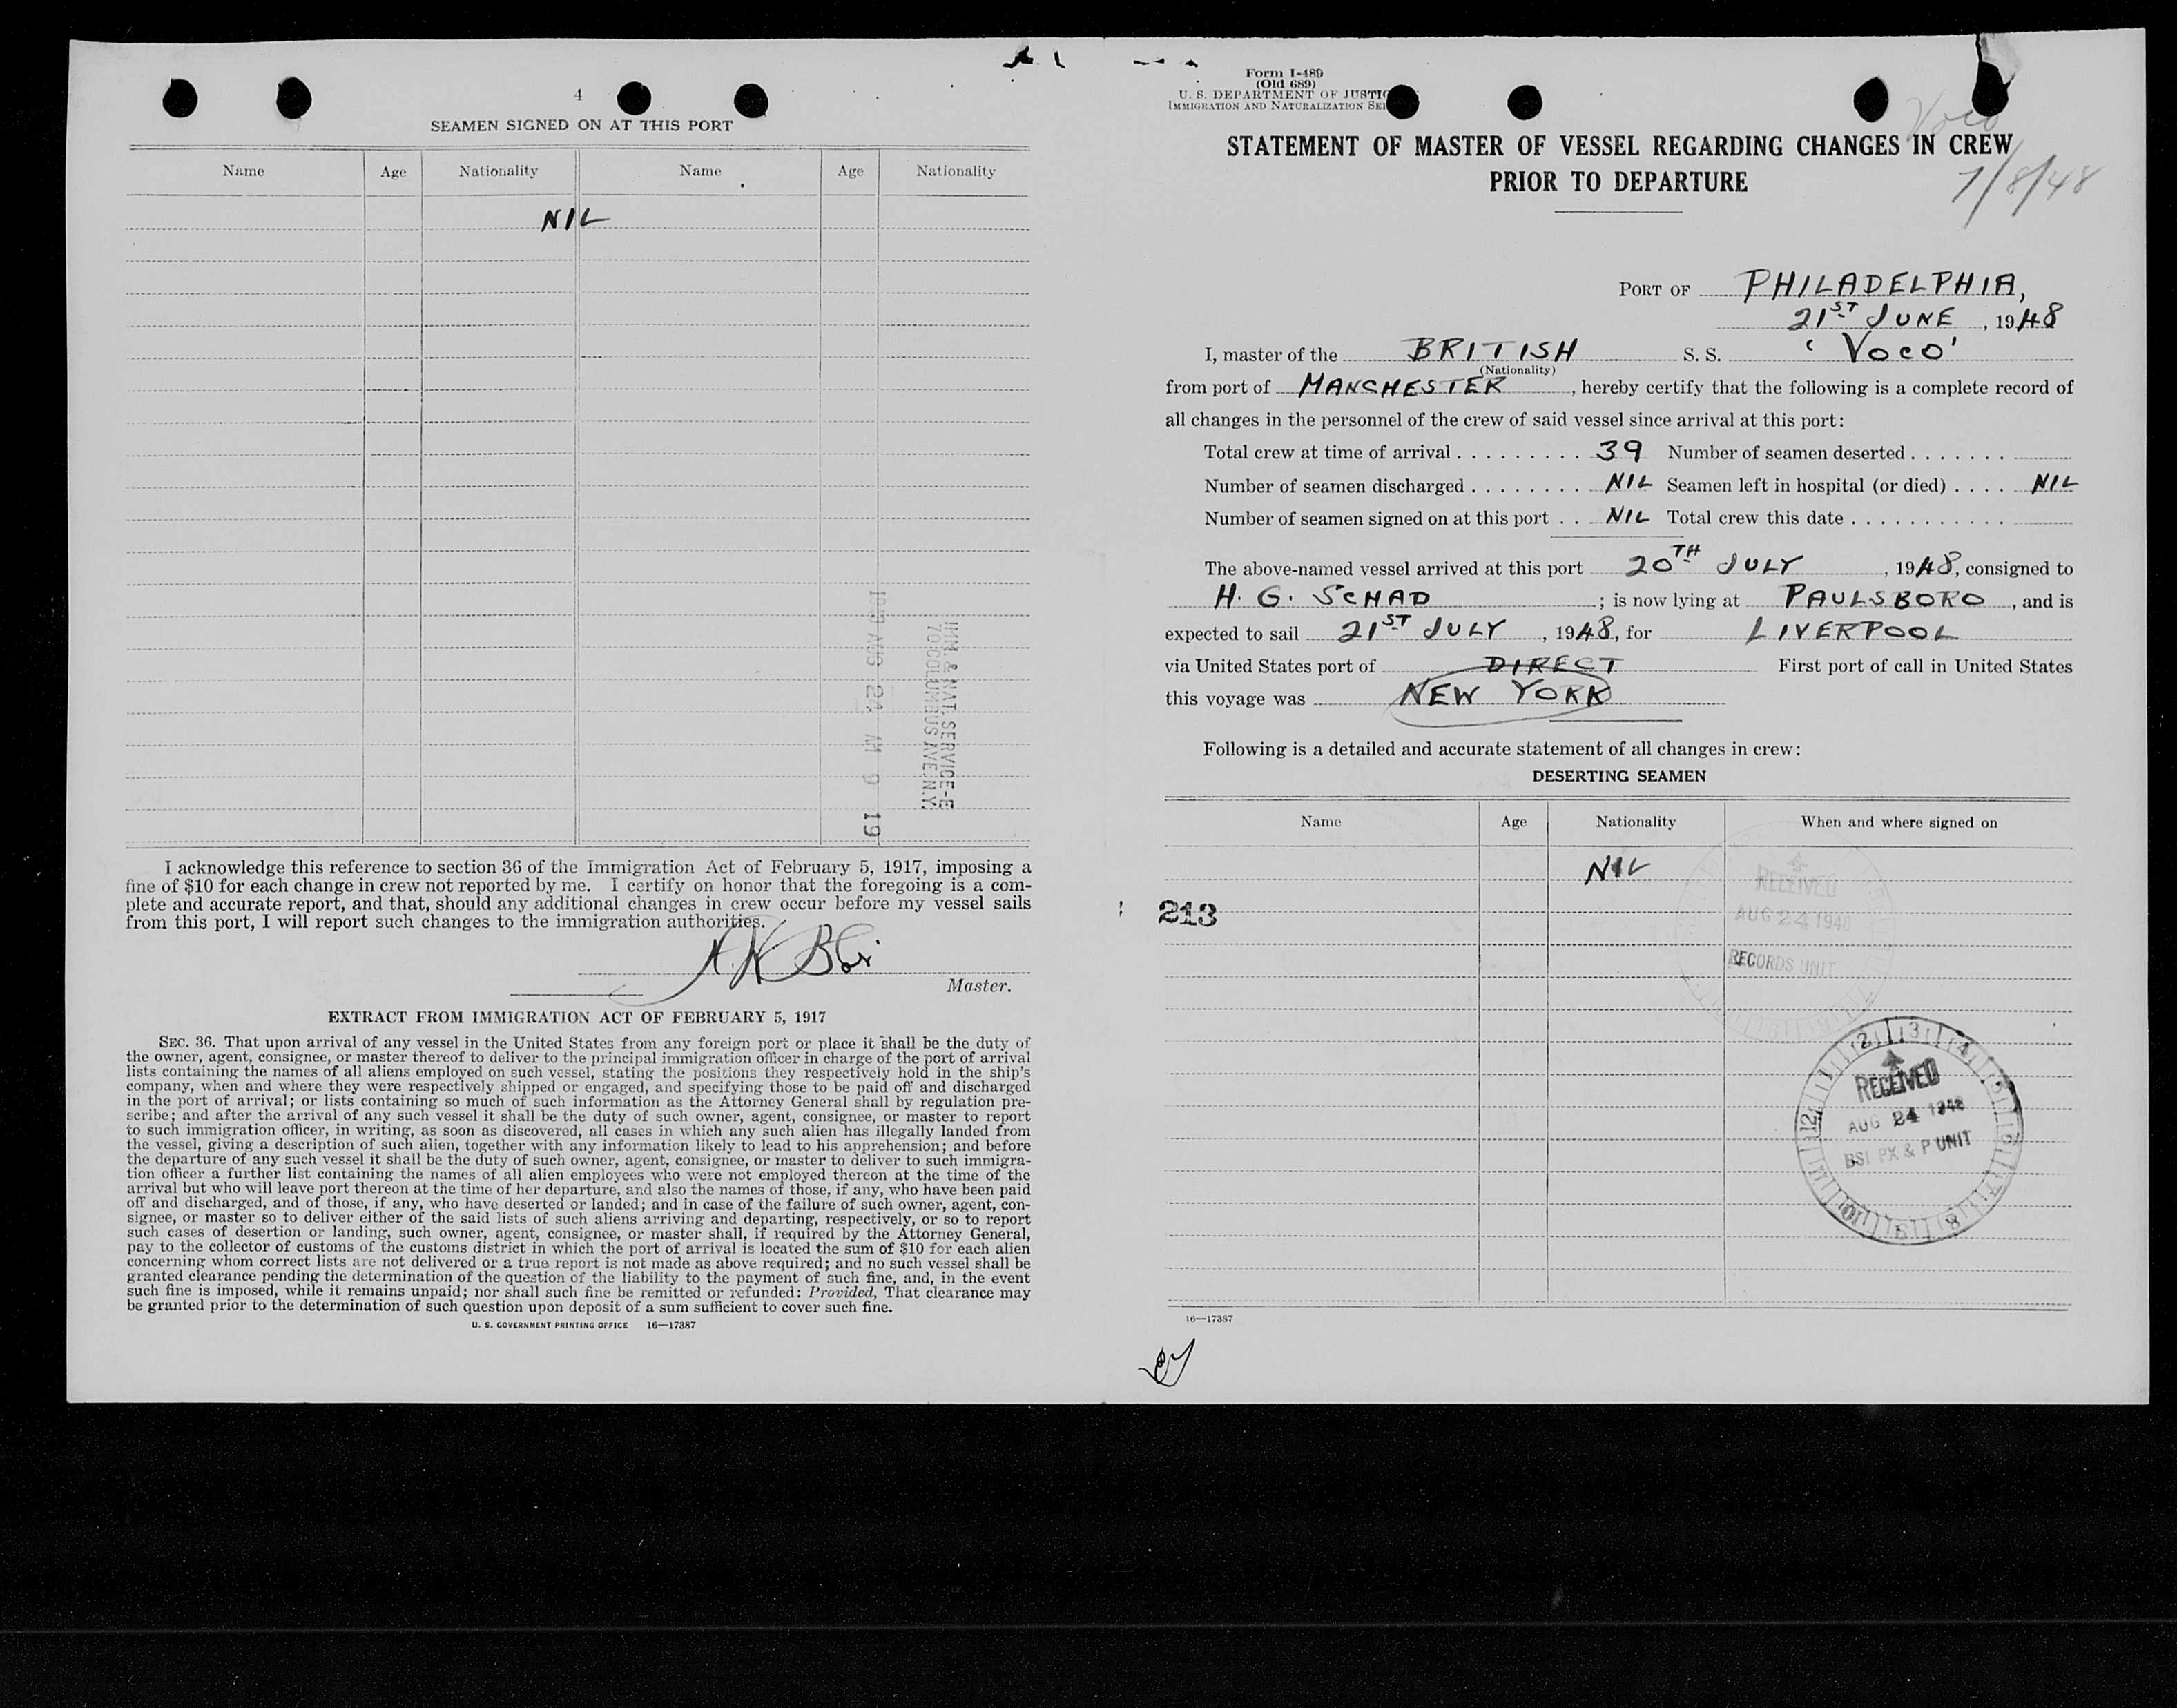 4
SEAMEN SIGNED ON AT THIS PORT
Name Age Nationality Name Age Nationality
NIL
IMM. & NAT. SERVICE-E
70 COLUMBUS AVE. N.Y.
AUG 24 AM 9 19
I acknowledge this reference to section 36 of the Immigration Act of February 5, 1917, imposing a
fine of $10 for each change in crew not reported by me. I certify on honor that the foregoing is a com-
plete and accurate report, and that, should any additional changes in crew occur before my vessel sails
from this port, I will report such changes to the immigration authorities.
Master.
EXTRACT FROM IMMIGRATION ACT OF FEBRUARY 5, 1917
SEC. 36. That upon arrival of any vessel in the United States from any foreign port or place it shall be the duty of
the owner, agent, consignee, or master thereof to deliver to the principal immigration officer in charge of the port of arrival
lists containing the names of all aliens employed on such vessel, stating the positions they respectively hold in the ship's
company, when and where they were respectively shipped or engaged, and specifying those to be paid off and discharged
in the port of arrival; or lists containing so much of such information as the Attorney General shall by regulation pre-
scribe; and after the arrival of any such vessel it shall be the duty of such owner, agent, consignee, or master to report
to such immigration officer, in writing, as soon as discovered, all cases in which any such alien has illegally landed from
the vessel, giving a description of such alien, together with any information likely to lead to his apprehension; and before
the departure of any such vessel it shall be the duty of such owner, agent, consignee, or master to deliver to such immigra-
tion officer a further list containing the names of all alien employees who were not employed thereon at the time of the
arrival but who will leave port thereon at the time of her departure, and also the names of those, if any, who have been paid
off and discharged, and of those, if any, who have deserted or landed; and in case of the failure of such owner, agent, con-
signee, or master so to deliver either of the said lists of such aliens arriving and departing, respectively, or so to report
such cases of desertion or landing, such owner, agent, consignee, or master shall, if required by the Attorney General,
pay to the collector of customs of the customs district in which the port of arrival is located the sum of $10 for each alien
concerning whom correct lists are not delivered or a true report is not made as above required; and no such vessel shall be
granted clearance pending the determination of the question of the liability to the payment of such fine, and, in the event
such fine is imposed, while it remains unpaid; nor shall such fine be remitted or refunded: Provided, That clearance may
be granted prior to the determination of such question upon deposit of a sum sufficient to cover such fine.
U. S. GOVERNMENT PRINTING OFFICE 16—17387
Form I-489
(Old 689)
U. S. DEPARTMENT OF JUSTIC
IMMIGRATION AND NATURALIZATION SE
Voco
7/8/48
STATEMENT OF MASTER OF VESSEL REGARDING CHANGES IN CREW
PRIOR TO DEPARTURE
PORT OF PHILADELPHIA,
21ST JUNE, 1948
I, master of the BRITISH S. S. 'VOCO'
(Nationality)
from port of MANCHESTER, hereby certify that the following is a complete record of
all changes in the personnel of the crew of said vessel since arrival at this port:
Total crew at time of arrival . . . . . . . . . 39 Number of seamen deserted . . . . . . .
Number of seamen discharged . . . . . . . . NIL Seamen left in hospital (or died) . . . . NIL
Number of seamen signed on at this port . . NIL Total crew this date . . . . . . . . . . . .
The above-named vessel arrived at this port 20TH JULY, 1948, consigned to
H. G. SCHAD; is now lying at PAULSBORO, and is
expected to sail 21ST JULY, 1948, for LIVERPOOL
via United States port of DIRECT First port of call in United States
this voyage was NEW YORK
Following is a detailed and accurate statement of all changes in crew:
DESERTING SEAMEN
Name Age Nationality When and where signed on
NIL
213
RECEIVED
AUG 24 1948
RECORDS UNIT
RECEIVED
AUG 24 1948
BSI PX & P UNIT
16—17387